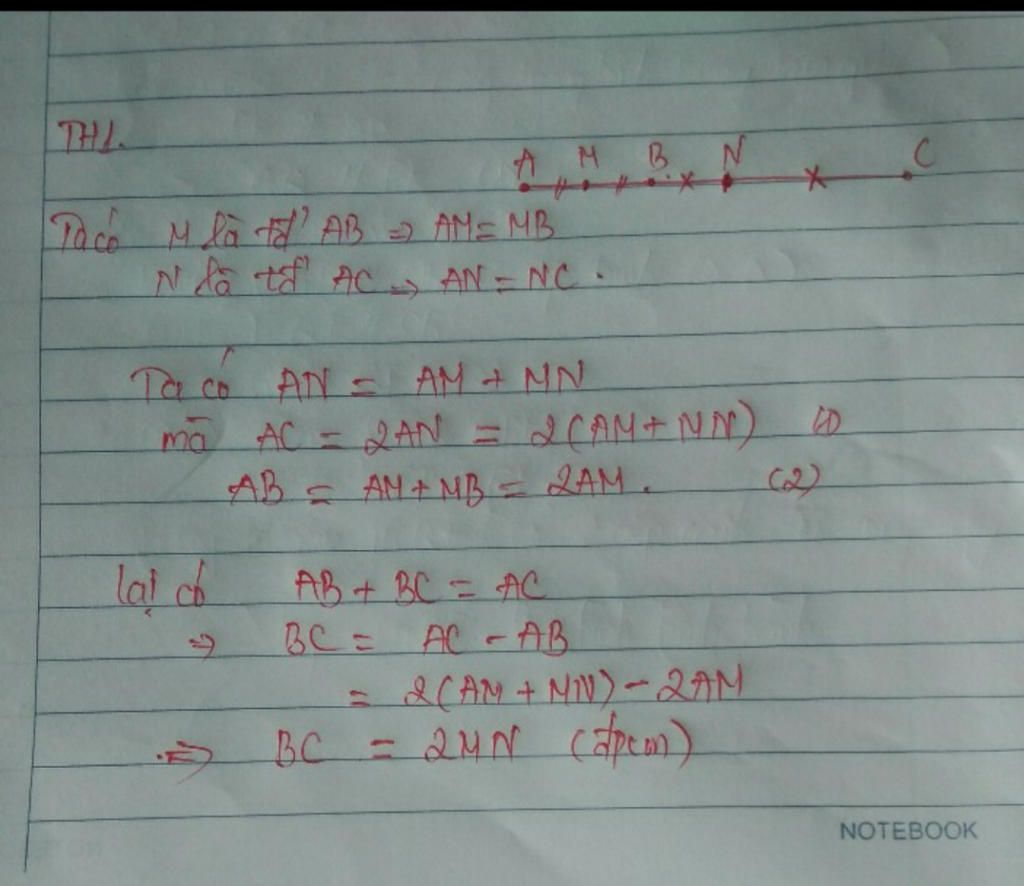 TH1.
A M B N C
Ta có M là tđ' AB => AM = MB
N là tđ' AC => AN = NC.
Ta có AN = AM + MN
mà AC = 2AN = 2(AM + MN) (1)
AB = AM + MB = 2AM. (2)
lại có AB + BC = AC
=> BC = AC - AB
= 2(AM + MN) - 2AM
=> BC = 2MN (đpcm)
NOTEBOOK